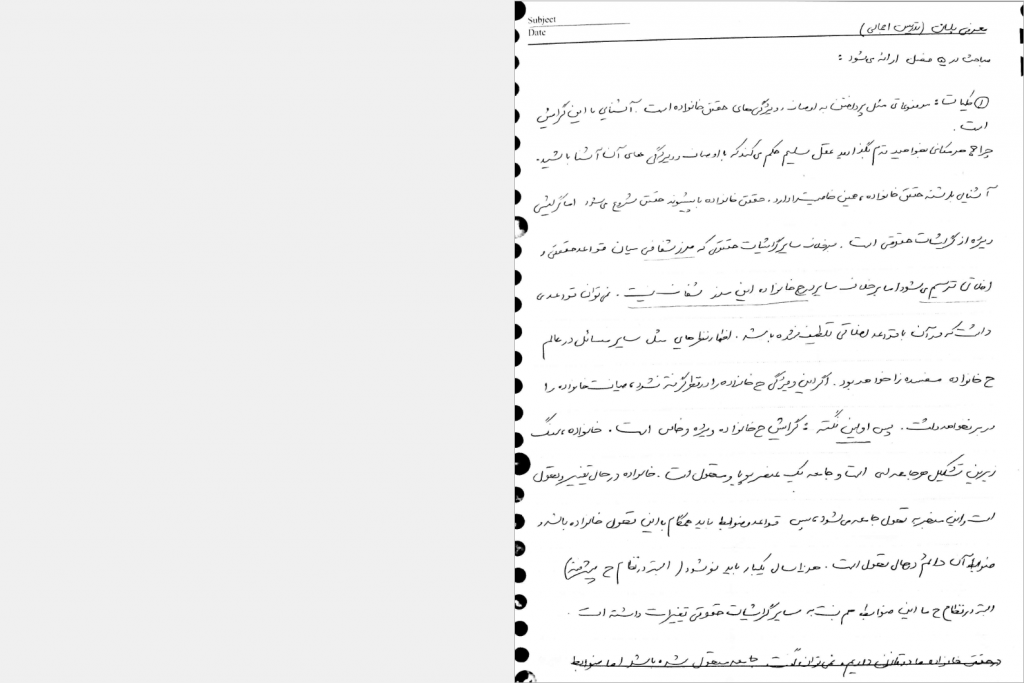 Subject
Date
معرفی بلسان (تدریس اجمالی)
مباحث در ۵ فصل ارائه می‌شود :
① کلیات : موضوعاتی مثل پرداختن به اوصاف و ویژگی‌های حقوق خانواده است. آشنایی با این گرایش
است.
چراکه هر مکانی بخواهید قدم بگذارید عقل سلیم حکم می‌کند که با اوصاف و ویژگی های آن آشنا باشید.
آشنایی با رشته حقوق خانواده، همین خاصیت را دارد. حقوق خانواده با پیشوند حقوق شروع می‌شود اما گرایشی
ویژه از گرایشات حقوقی است. برخلاف سایر گرایشات حقوقی که مرز شفافی میان قواعد حقوقی و
اخلاقی ترسیم می‌شود اما برخلاف سایر در ح خانواده این مرز شفاف نیست. نمی‌توان قواعدی
داشت که در آن با قواعد اخلاقی تلطیف نشده باشد. اظهار نظرهایی مثل سایر مسائل در عالم
ح خانواده مفسده زا خواهد بود. اگر این ویژگی ح خانواده را در نظر گرفته نشود، صیانت خانواده را
در بر نخواهد داشت. پس اولین نکته : گرایش ح خانواده ویژه و خاص است. خانواده، سنگ
زیرین تشکیل هر جامعه ای است و جامعه یک عنصر پویا و متحول است. خانواده در حال تغییر و تحول
است و این منجر به تحول جامعه می‌شود، پس قواعد و ضوابط باید همگام با این تحول خانواده باشد و
ضوابط آن دائم در حال تحول است. هر ۱۰ سال یکبار باید نو شود ( البته در نظام ح پیشرفته)
البته در نظام ح ما این ضوابط هم نسبت به سایر گرایشات حقوقی تغییرات داشته است.
در حقوق خانواده ما در قانون داریم و نمی توان گفت جامعه متحول شده باشد اما ضوابط